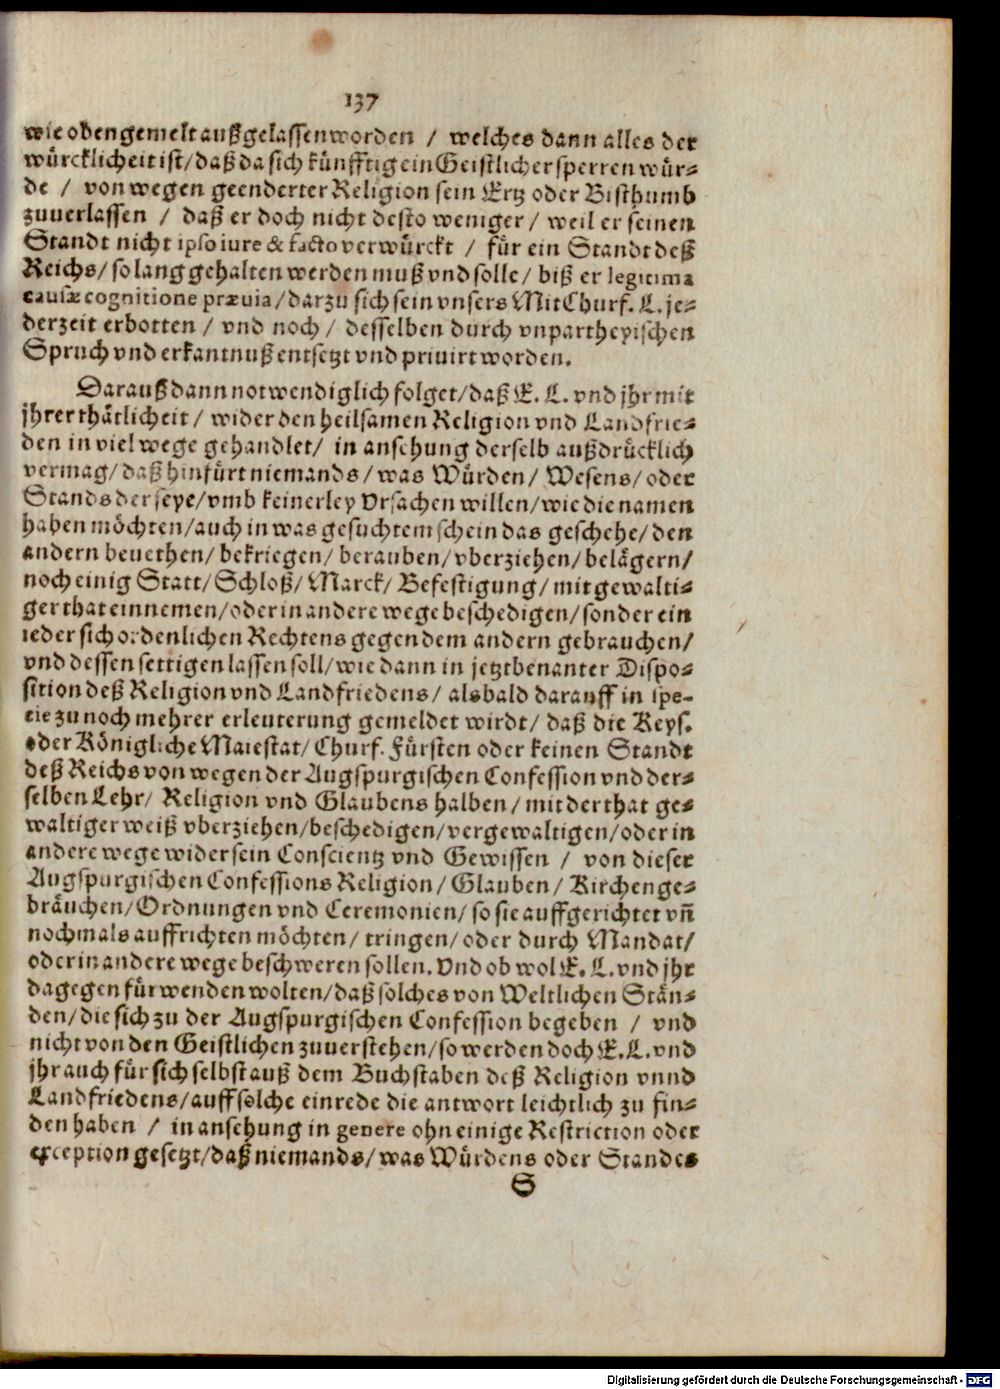 137
wie oben gemelt außgelassen worden / welches dann alles der
würcklicheit ist / daß da sich künfftig ein Geistlicher sperren wür-
de / von wegen geenderter Religion sein Ertz oder Bisthumb
zuuerlassen / daß er doch nicht desto weniger / weil er seinen
Standt nicht ipso iure & facto verwürckt / für ein Standt deß
Reichs / so lang gehalten werden muß vnd solle / biß er legitima
causæ cognitione prævia / darzu sich sein vnsers MitChurf. L. je-
derzeit erbotten / vnd noch / desselben durch vnpartheyischen
Spruch vnd erkantnuß entsetzt vnd priuirt worden.
Darauß dann notwendiglich folget / daß E. L. vnd jhr mit
jhrer thätlicheit / wider den heilsamen Religion vnd Landfrie-
den in viel wege gehandlet / in ansehung derselb außdrücklich
vermag / daß hinfürt niemands / was Würden / Wesens / oder
Stands der seye / vmb keinerley Vrsachen willen / wie die namen
haben möchten / auch in was gesuchtem schein das geschehe / den
andern beuethen / bekriegen / berauben / vberziehen / belägern /
noch einig Statt / Schloß / Marck / Befestigung / mit gewalti-
ger that einnemen / oder in andere wege beschedigen / sonder ein
ieder sich ordenlichen Rechtens gegen dem andern gebrauchen /
vnd dessen settigen lassen soll / wie dann in jetztbenanter Dispo-
sition deß Religion vnd Landfriedens / alsbald darauff in spe-
cie zu noch mehrer erleuterung gemeldet wirdt / daß die Keys.
oder Königliche Maiestat / Churf. Fürsten oder keinen Standt
deß Reichs von wegen der Augspurgischen Confession vnd der-
selben Lehr / Religion vnd Glaubens halben / mit der that ge-
waltiger weiß vberziehen / beschedigen / vergewaltigen / oder in
andere wege wider sein Conscientz vnd Gewissen / von dieser
Augspurgischen Confessions Religion / Glauben / Kirchenge-
bräuchen / Ordnungen vnd Ceremonien / so sie auffgerichtet vñ
nochmals auffrichten möchten / tringen / oder durch Mandat /
oder in andere wege beschweren sollen. Vnd ob wol E. L. vnd jhr
dagegen fürwenden wolten / daß solches von Weltlichen Stän-
den / die sich zu der Augspurgischen Confession begeben / vnd
nicht von den Geistlichen zuuerstehen / so werden doch E. L. vnd
jhr auch für sich selbst auß dem Buchstaben deß Religion vnnd
Landfriedens / auff solche einrede die antwort leichtlich zu fin-
den haben / in ansehung in genere ohn einige Restriction oder
exception gesetzt / daß niemands / was Würdens oder Standes
S
Digitalisierung gefördert durch die Deutsche Forschungsgemeinschaft - DFG